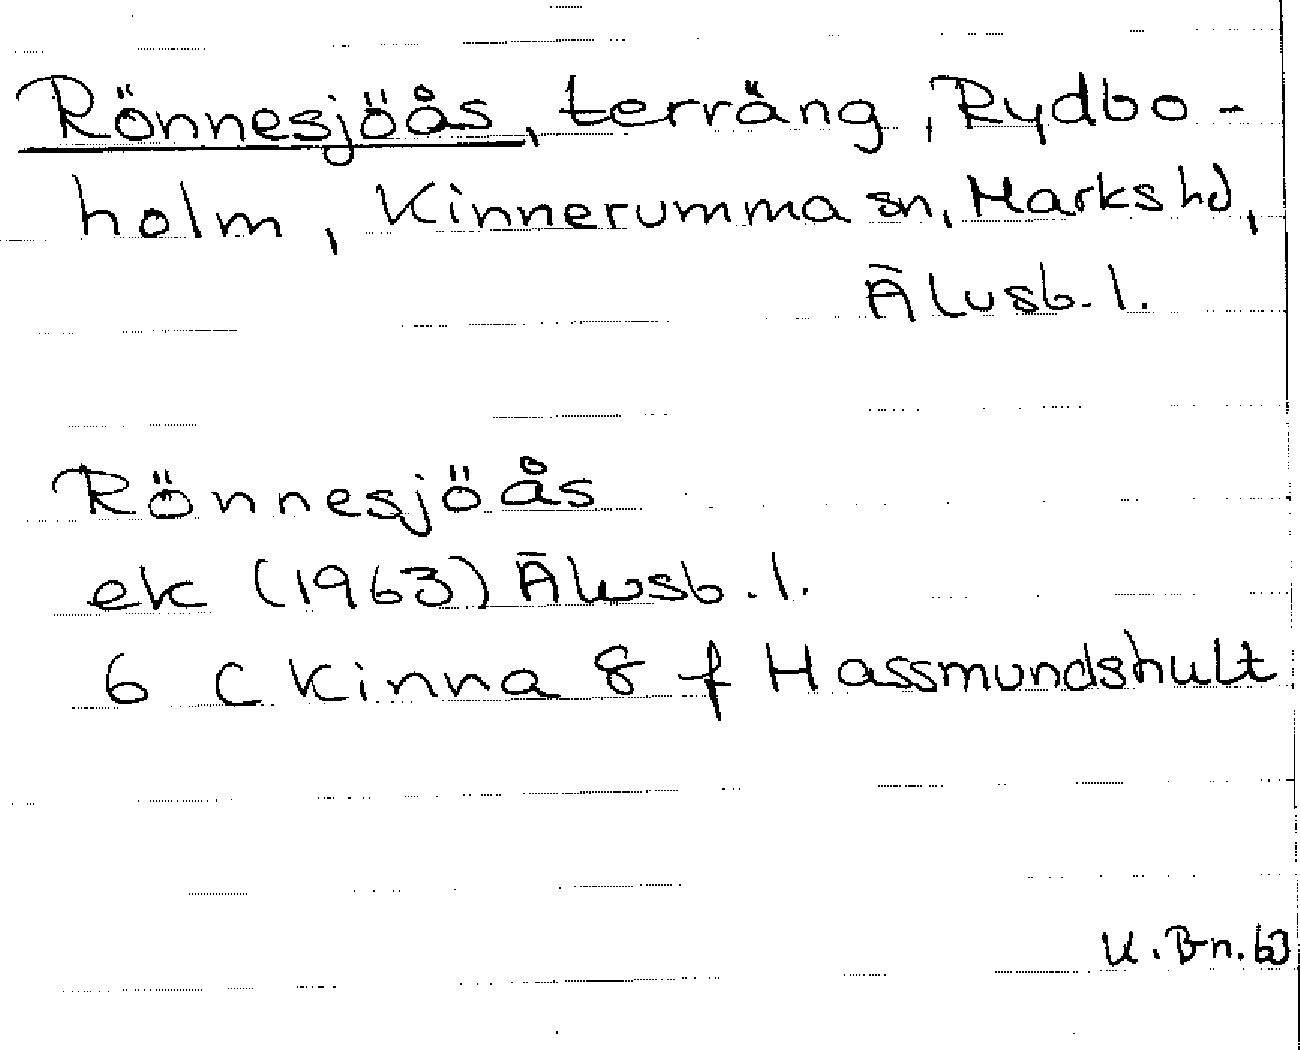 Rönnesjöås, terräng, Rydbo-
holm, Kinnerumma sn, Marks hd,
Älvsb. l.
Rönnesjöås
ek (1963) Älvsb. l.
6 C Kinna 8 f Hassmundshult
K. Bn. 63